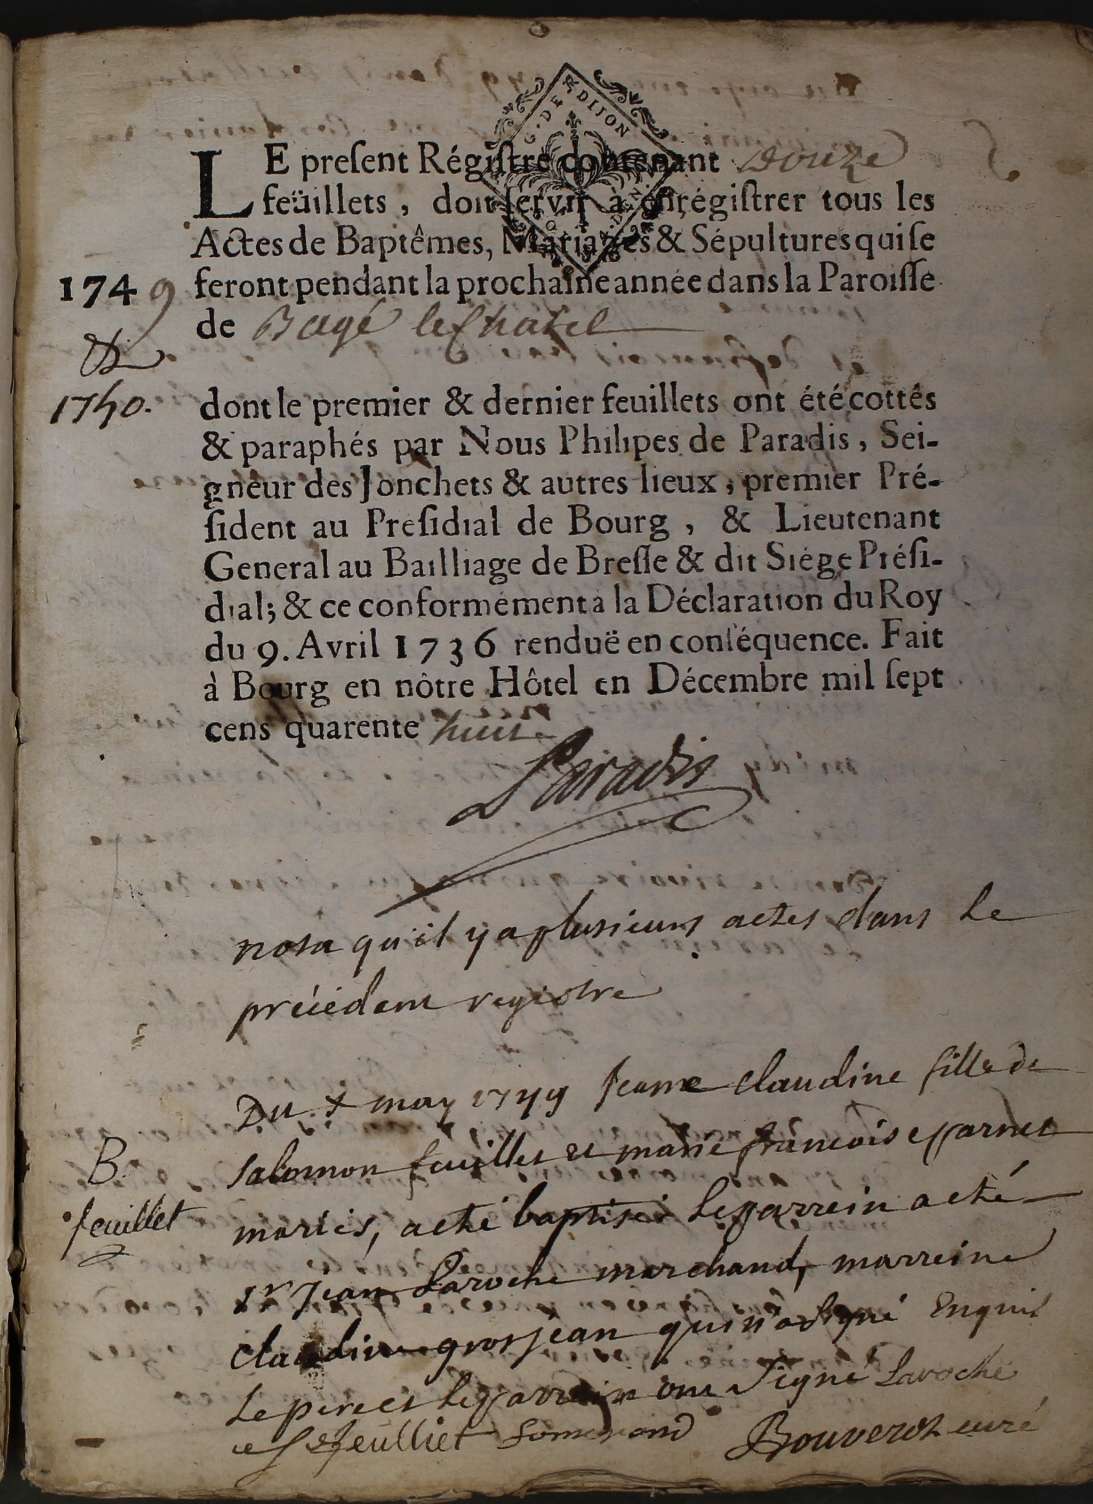 G. DE R DIJON
LE preſent Régiſtre contenant Douze
feüillets, doit ſervir à enrégiſtrer tous les
Actes de Baptêmes, Mariages & Sépultures qui ſe
1749 feront pendant la prochaine année dans la Paroiſſe
de Bagé le Chatel
&
1750. dont le premier & dernier feuillets ont été cottés
& paraphés par Nous Philipes de Paradis, Sei-
gneur des Jonchets & autres lieux, premier Pré-
ſident au Preſidial de Bourg, & Lieutenant
General au Bailliage de Breſſe & dit Siége Préſi-
dial; & ce conformément à la Déclaration du Roy
du 9. Avril 1736 renduë en conſéquence. Fait
à Bourg en nôtre Hôtel en Décembre mil ſept
cens quarente huit
Paradis
nota qu'il y a plusieurs actes dans le
précédent registre
Du may 1749 Jeanne claudine fille de
B. salomon feuillet et marie francoise parnet
feuillet mariés, a eté baptisée le parrein a eté
sr jean Laroche marchand, marreine
claudine grosjean qui n'a signé Enquis
Le pere et le parrein ont signé Laroche
S feulliet Bouverot curé